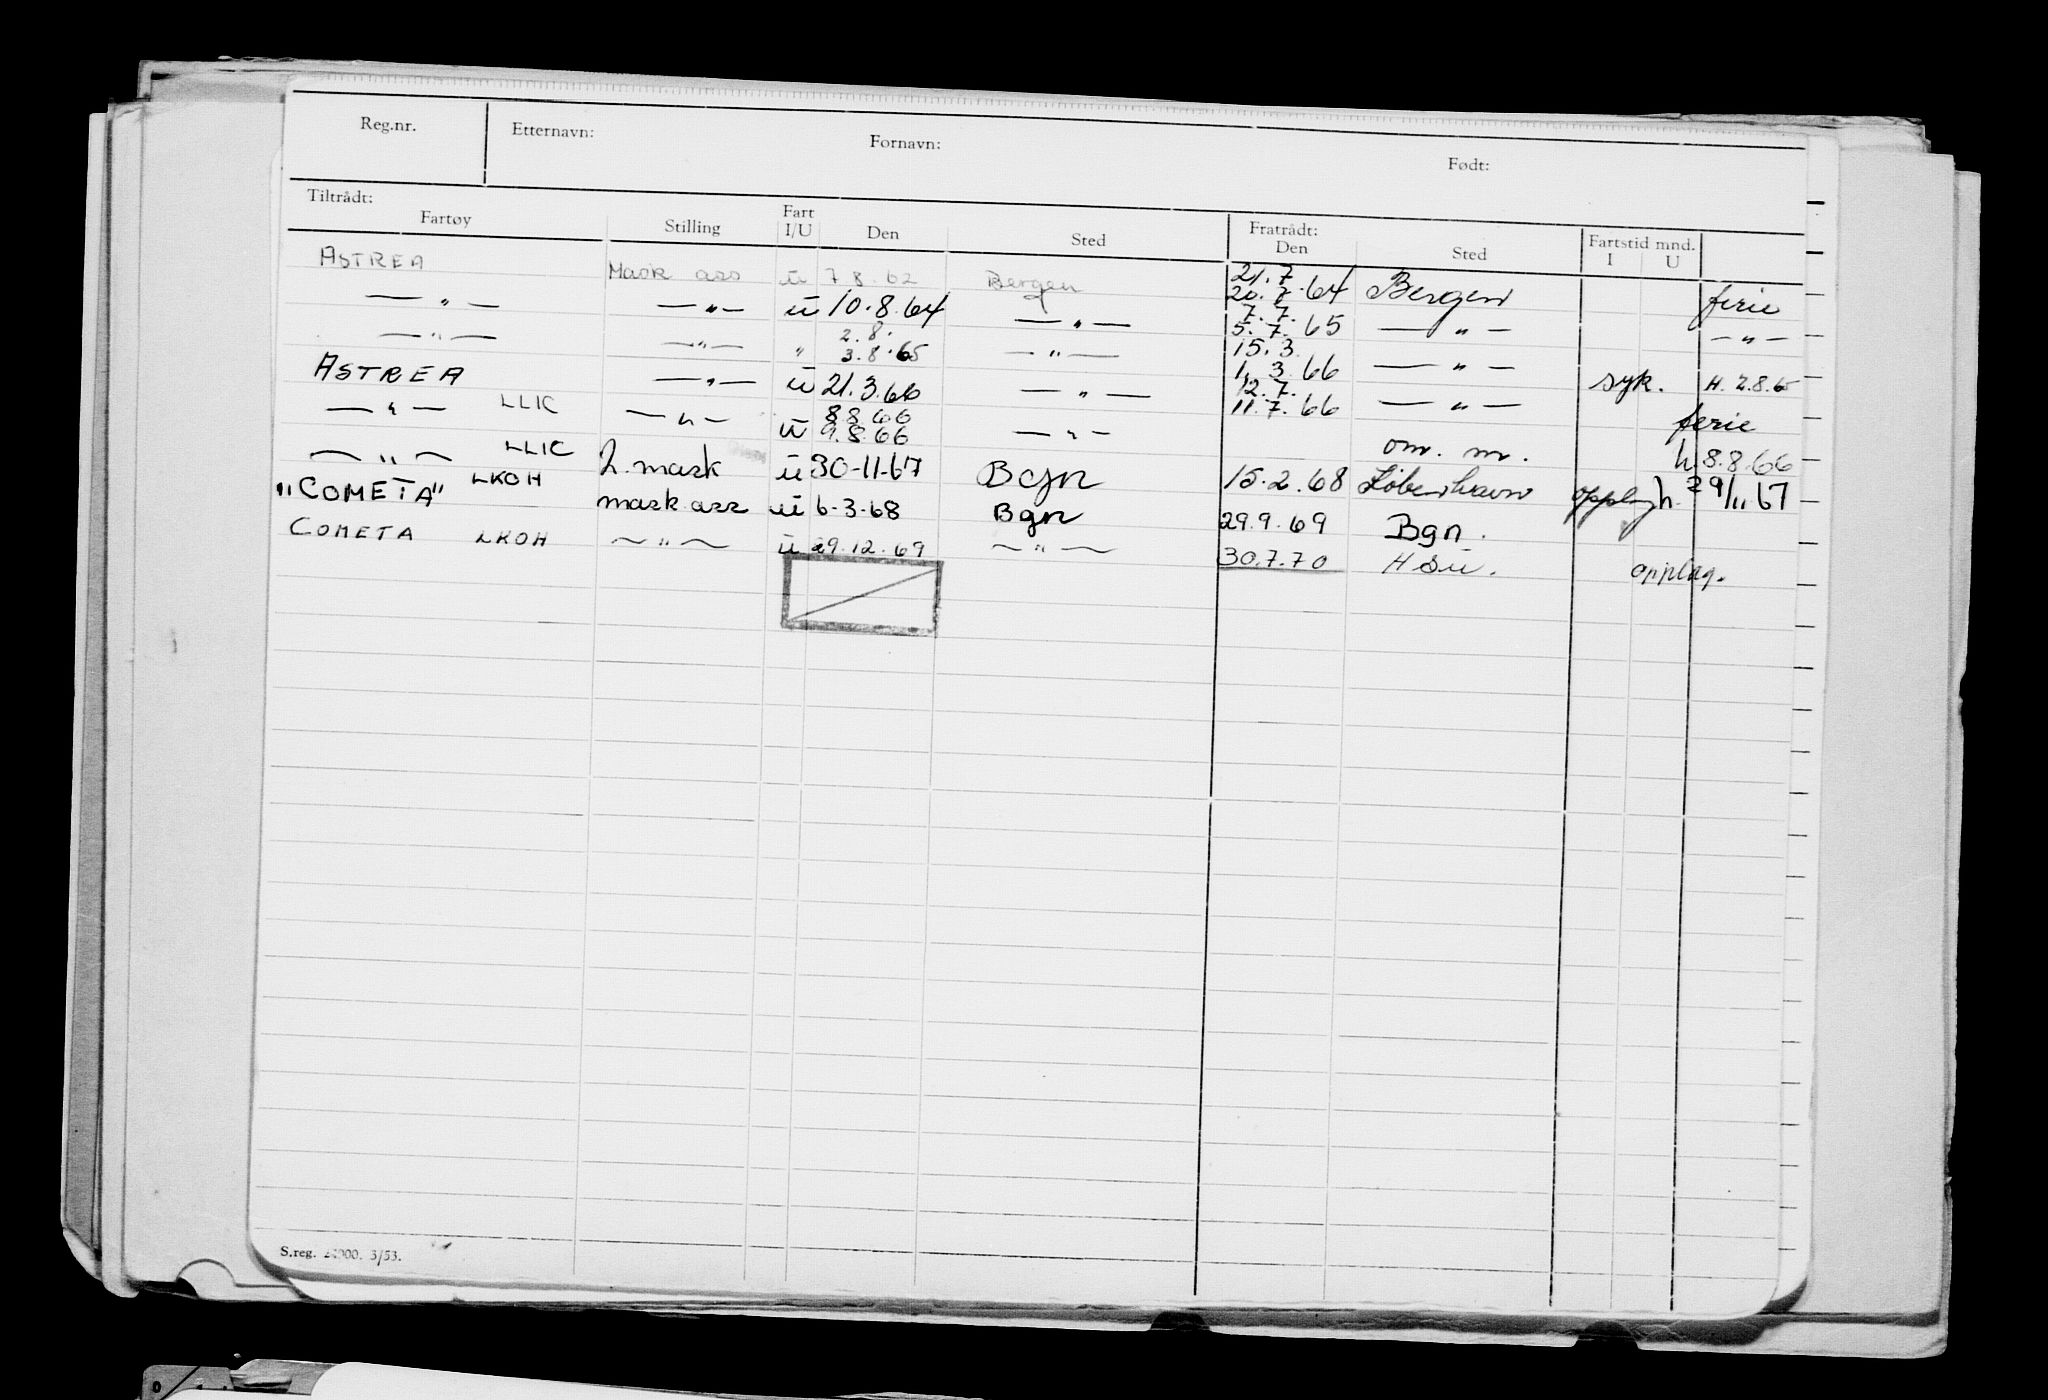 Reg.nr. Etternavn: Fornavn: Født:
Tiltrådt: Fratrådt: Fartstid mnd.
Fartøy Stilling Fart I/U Den Sted Den Sted I U
ASTREA Mask ass u 7 8. 62 Bergen 21.7 20.7.64 Bergen ferie
— " — — " — u 10.8.64 — " — 7.7. 5.7.65 — " — — " —
— " — — " — " 2.8. 3.8.65 — " — 15.3. 1.3.66 — " — syk. H. 2.8.65
ASTREA — " — u 21.3.66 — " — 12.7. 11.7.66 — " — ferie
— " — LLIC — " — u 8.8.66 9.8.66 — " — om. m. h. 8.8.66
— " — LLIC 2. mask u 30-11-67 Bgn 15.2.68 København opplag h. 29/11 67
"COMETA" LKOH mask ass u 6-3-68 Bgn 29.9.69 Bgn.
COMETA LKOH — " — u 29.12.69 — " — 30.7.70 H Su. opplag.
S.reg. 3/53.